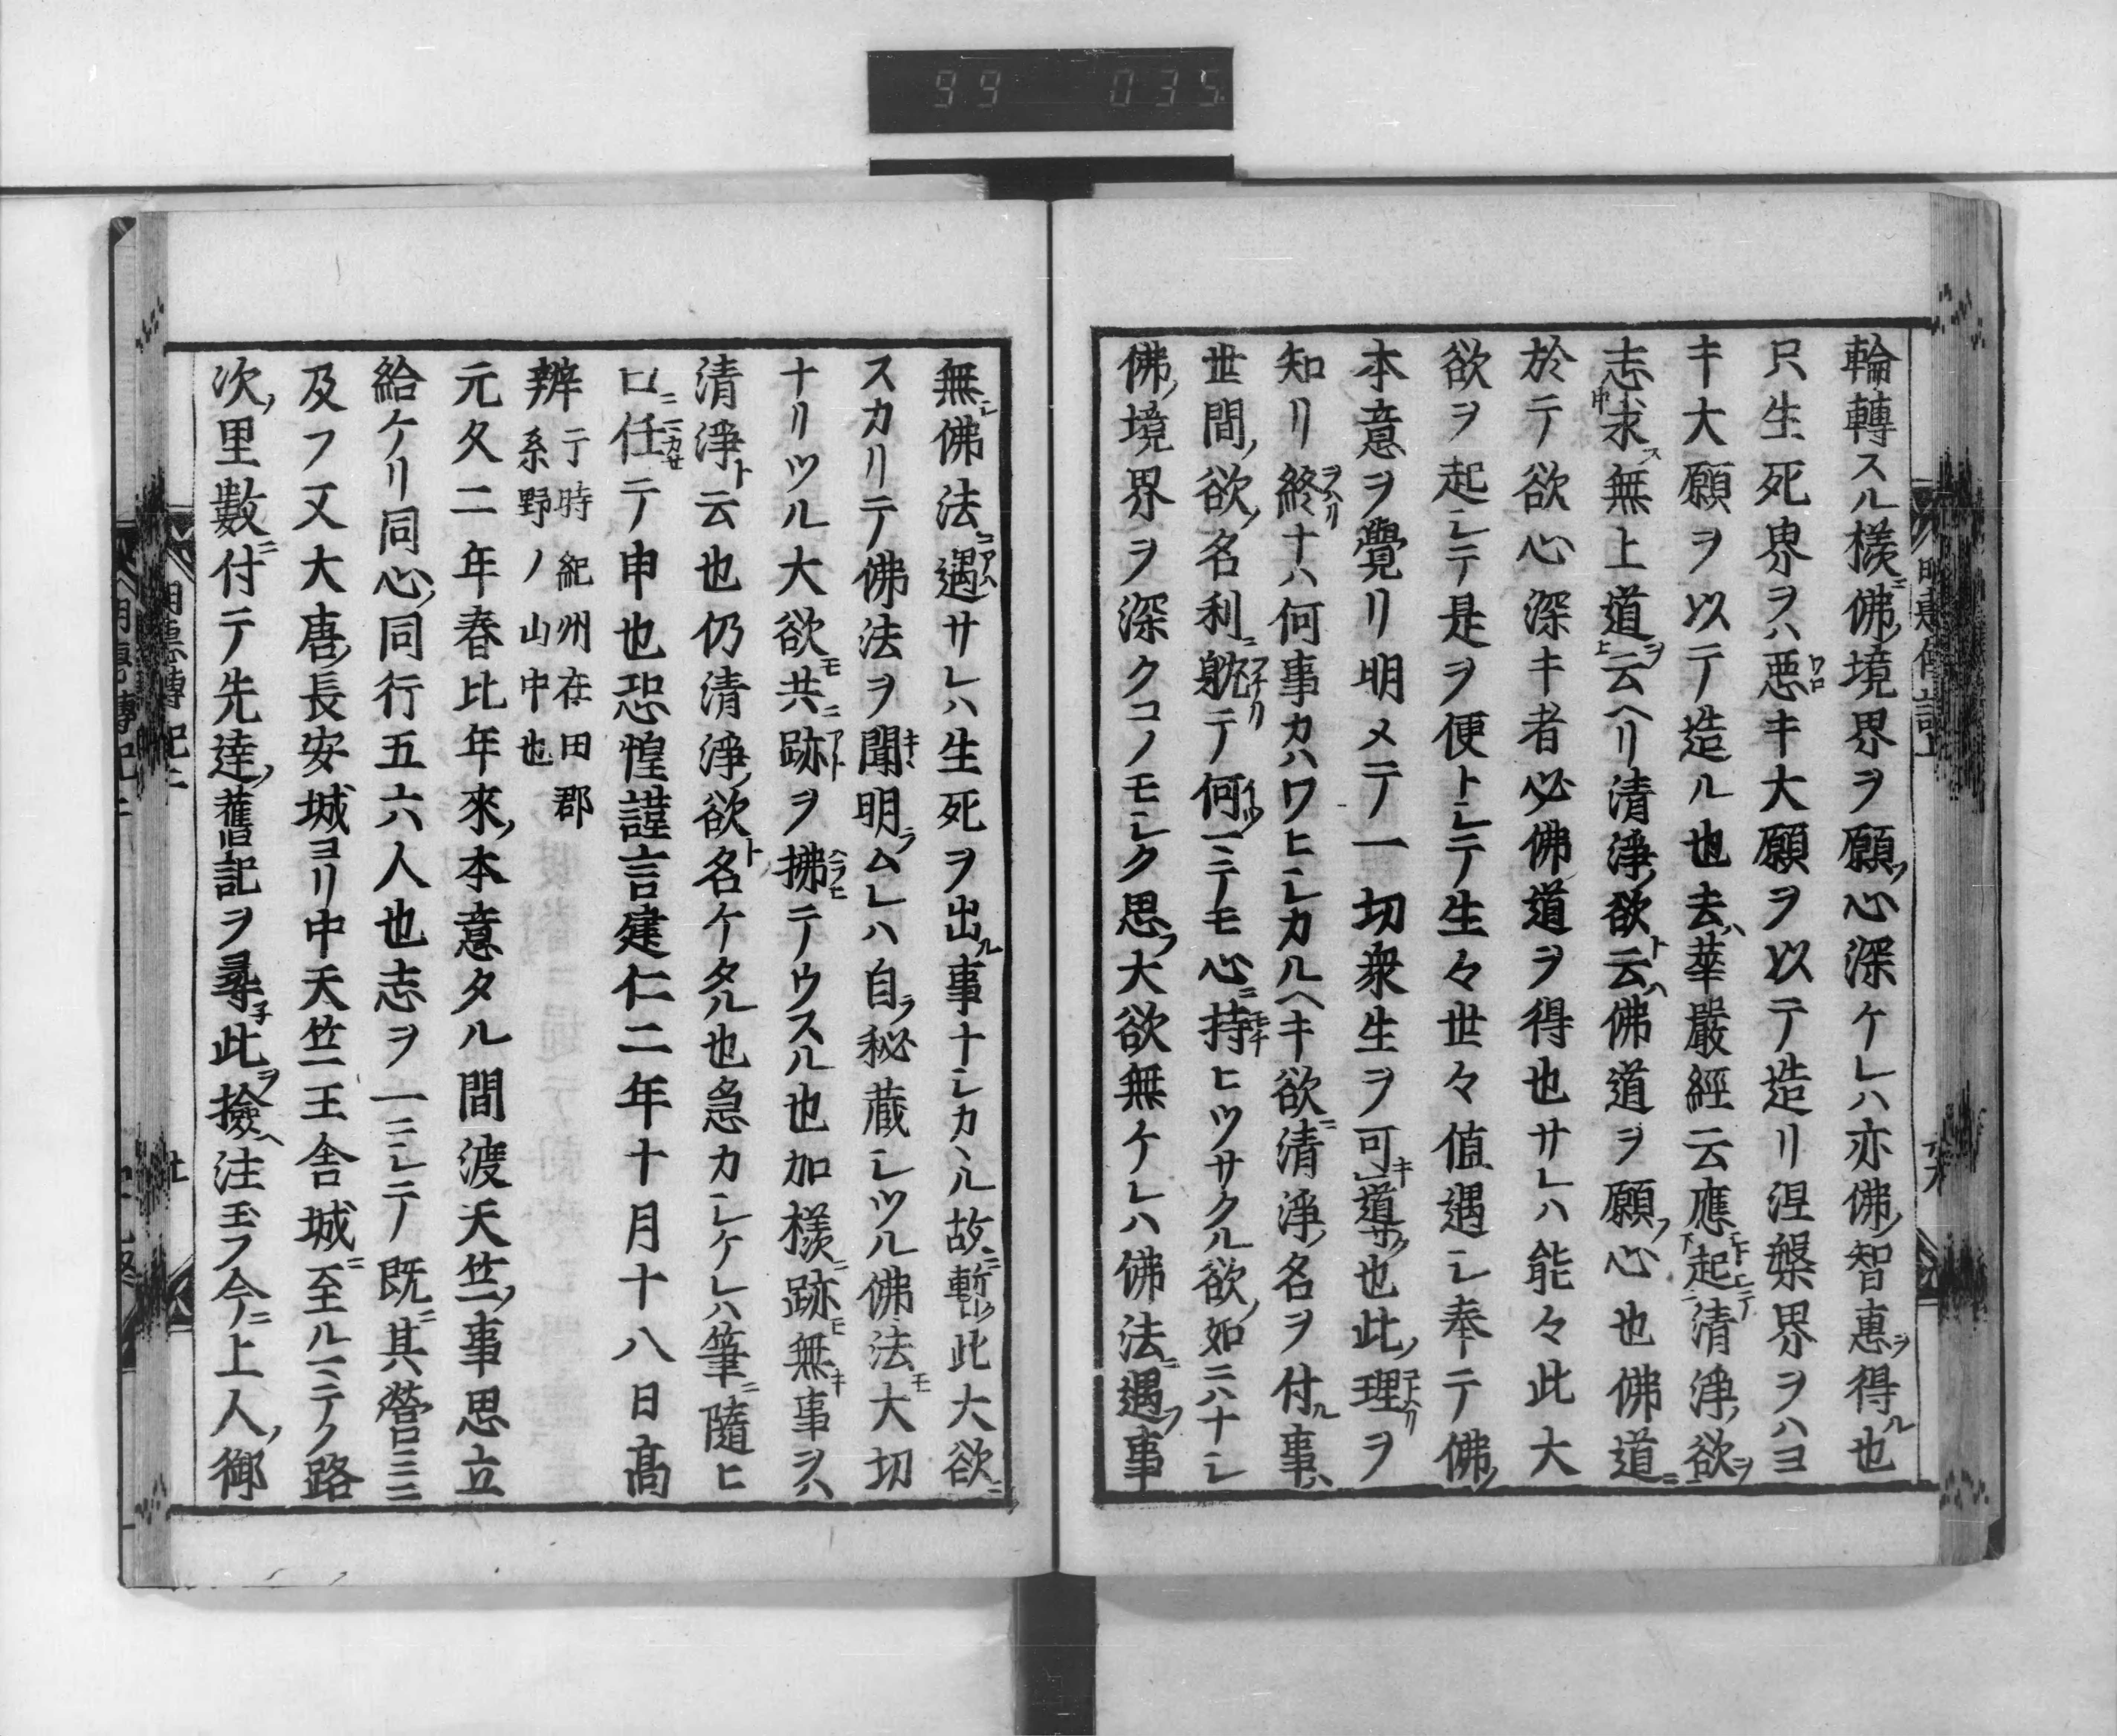 99 035
輪轉スル樣ニ佛ノ境界ヲ願ノ心深ケレハ亦佛ノ智惠ヲ得ル也
只生死界ヲハ惡ワロキ大願ヲ以テ造リ涅槃界ヲハヨ
キ大願ヲ以テ造ル也去ハ華嚴經云應起清淨ノ欲ヲ
志求無上道ヲ云ヘリ清淨ノ欲ト云ハ佛道ヲ願フ心也佛道ニ
於テ欲心深キ者必佛道ヲ得也サレハ能々此大
欲ヲ起シテ是ヲ便トシテ生々世々值遇シ奉テ佛ノ
本意ヲ覺リ明メテ一切衆生ヲ可キ道サク也此ノ理コトハリヲ
知リ終ヲハリナハ何事カハワヒシカルヘキ欲ニ清淨ノ名ヲ付ル事ハ
世間ノ欲ノ名利ニ耽フケリテ何イツニテモ心ニ持モチヒツサクル欲ノ如ニハナシ
佛ノ境界ヲ深クコノモシク思フ大欲無ケレハ佛法ニ遇フ事
無シ佛法ニ遇アハサレハ生死ヲ出ル事ナシカヽル故ニ暫ク此大欲ニ
スカリテ佛法ヲ聞キヽ明ラムレハ自ラ秘蔵シツル佛法モ大切
ナリツル大欲モ共ニ跡アトヲ拂ハラヒテウスル也加樣ニ跡モ無キ事ヲハ
清淨ト云也仍清淨ノ欲ト名ケタル也急カシケレハ筆ニ隨ヒ
口ニ任マカセテ申也恐惶謹言建仁二年十月十八日高
辨于時紀州在田郡
糸野ノ山中也
元久二年春比年來ノ本意タル間渡天竺ノ事思立
給ケリ同心ノ同行五六人也志ヲ一ニシテ既ニ其營ニ
及フ又大唐ノ長安城ヨリ中天竺王舍城ニ至ルマテノ路
次ノ里數ニ付テ先達ノ舊記ヲ尋子此ヲ撿ヘ注玉フ今ニ上人ノ御